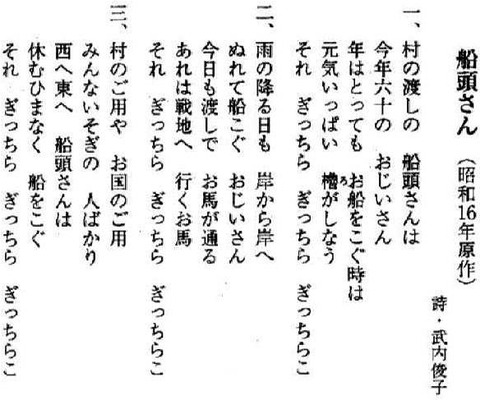 船頭さん （昭和16年原作）
詩・武内俊子
一、村の渡しの　船頭さんは
今年六十の　おじいさん
年はとっても　お船をこぐ時は
元気いっぱい　櫓がしなう
それ　ぎっちら　ぎっちら　ぎっちらこ
二、雨の降る日も　岸から岸へ
ぬれて船こぐ　おじいさん
今日も渡しで　お馬が通る
あれは戦地へ　行くお馬
それ　ぎっちら　ぎっちら　ぎっちらこ
三、村のご用や　お国のご用
みんないそぎの　人ばかり
西へ東へ　船頭さんは
休むひまなく　船をこぐ
それ　ぎっちら　ぎっちら　ぎっちらこ